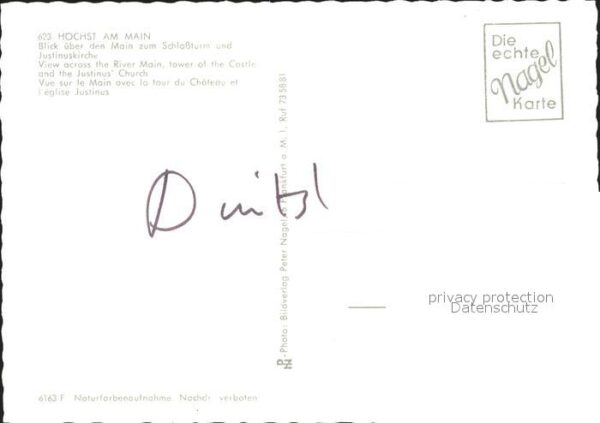 623 HÖCHST AM MAIN
Blick über den Main zum Schloßturm und
Justinuskirche
View across the River Main, tower of the Castle
and the Justinus' Church
Vue sur le Main avec la tour du Château et
l'église Justinus
Die
echte
Nagel
Karte
PNF-Photo: Bildverlag Peter Nagel, Frankfurt a. M. 1, Ruf 735881
privacy protection
Datenschutz
6163 F Naturfarbenaufnahme Nachdr. verboten